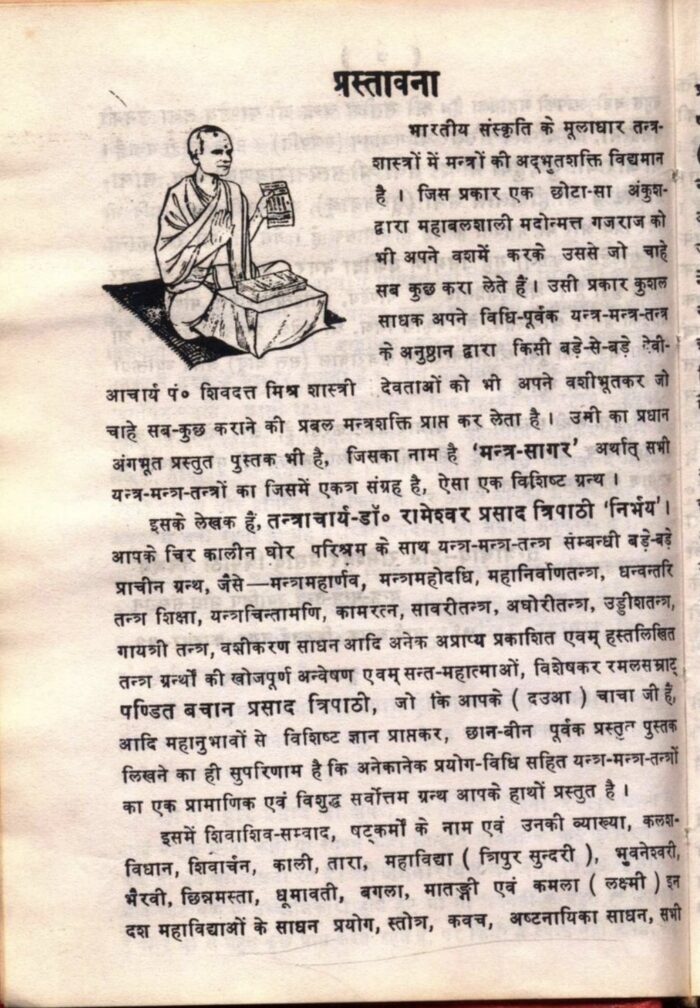 प्रस्तावना
भारतीय संस्कृति के मूलाधार तन्त्र-
शास्त्रों में मन्त्रों की अद्‌भुतशक्ति विद्यमान
है । जिस प्रकार एक छोटा-सा अंकुश-
द्वारा महाबलशाली मदोन्मत्त गजराज को
भी अपने वशमें करके उससे जो चाहे
सब कुछ करा लेते हैं । उसी प्रकार कुशल
साधक अपने विधि-पूर्वक यन्त्र-मन्त्र-तन्त्र
के अनुष्ठान द्वारा किसी बड़े-से-बड़े देवी-
आचार्य पं० शिवदत्त मिश्र शास्त्री देवताओं को भी अपने वशीभूतकर जो
चाहे सब-कुछ कराने की प्रबल मन्त्रशक्ति प्राप्त कर लेता है । उमी का प्रधान
अंगभूत प्रस्तुत पुस्तक भी है, जिसका नाम है ‘मन्त्र-सागर’ अर्थात् सभी
यन्त्र-मन्त्र-तन्त्रों का जिसमें एकत्र संग्रह है, ऐसा एक विशिष्ट ग्रन्थ ।
इसके लेखक हैं, तन्त्राचार्य-डॉ० रामेश्वर प्रसाद त्रिपाठी ‘निर्भय’ ।
आपके चिर कालीन घोर परिश्रम के साथ यन्त्र-मन्त्र-तन्त्र संम्बन्धी बड़े-बड़े
प्राचीन ग्रन्थ, जैसे—मन्त्रमहार्णव, मन्त्रमहोदधि, महानिर्वाणतन्त्र, धन्वन्तरि
तन्त्र शिक्षा, यन्त्रचिन्तामणि, कामरत्न, सावरीतन्त्र, अघोरीतन्त्र, उड्डीशतन्त्र,
गायत्री तन्त्र, वशीकरण साधन आदि अनेक अप्राप्य प्रकाशित एवम् हस्तलिखित
तन्त्र ग्रन्थों की खोजपूर्ण अन्वेषण एवम् सन्त-महात्माओं, विशेषकर रमलसम्राट्
पण्डित बचान प्रसाद त्रिपाठी, जो कि आपके ( दउआ ) चाचा जी हैं,
आदि महानुभावों से विशिष्ट ज्ञान प्राप्तकर, छान-बीन पूर्वक प्रस्तुत पुस्तक
लिखने का ही सुपरिणाम है कि अनेकानेक प्रयोग-विधि सहित यन्त्र-मन्त्र-तन्त्रों
का एक प्रामाणिक एवं विशुद्ध सर्वोत्तम ग्रन्थ आपके हाथों प्रस्तुत है ।
इसमें शिवाशिव-सम्वाद, षट्कर्मों के नाम एवं उनकी व्याख्या, कलश-
विधान, शिवार्चन, काली, तारा, महाविद्या ( त्रिपुर सुन्दरी ), भुवनेश्वरी,
भैरवी, छिन्नमस्ता, धूमावती, बगला, मातङ्गी एवं कमला ( लक्ष्मी ) इन
दश महाविद्याओं के साधन प्रयोग, स्तोत्र, कवच, अष्टनायिका साधन, सभी